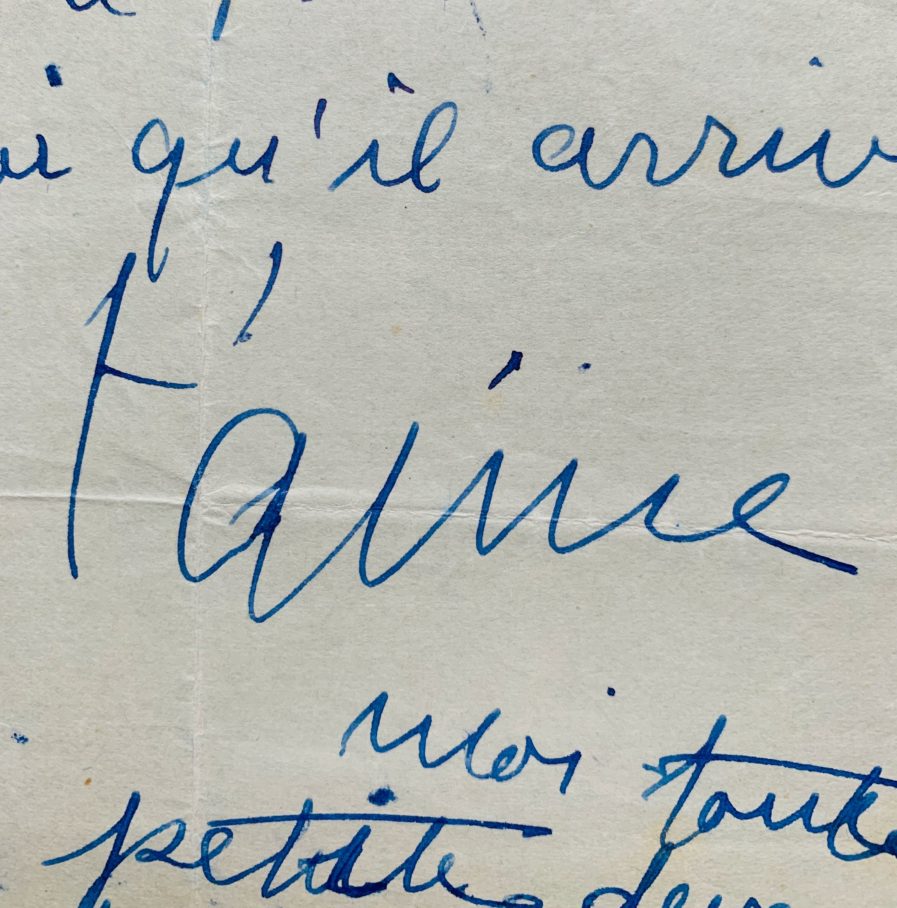 qu'il arriv
t'aime
moi toute
petite